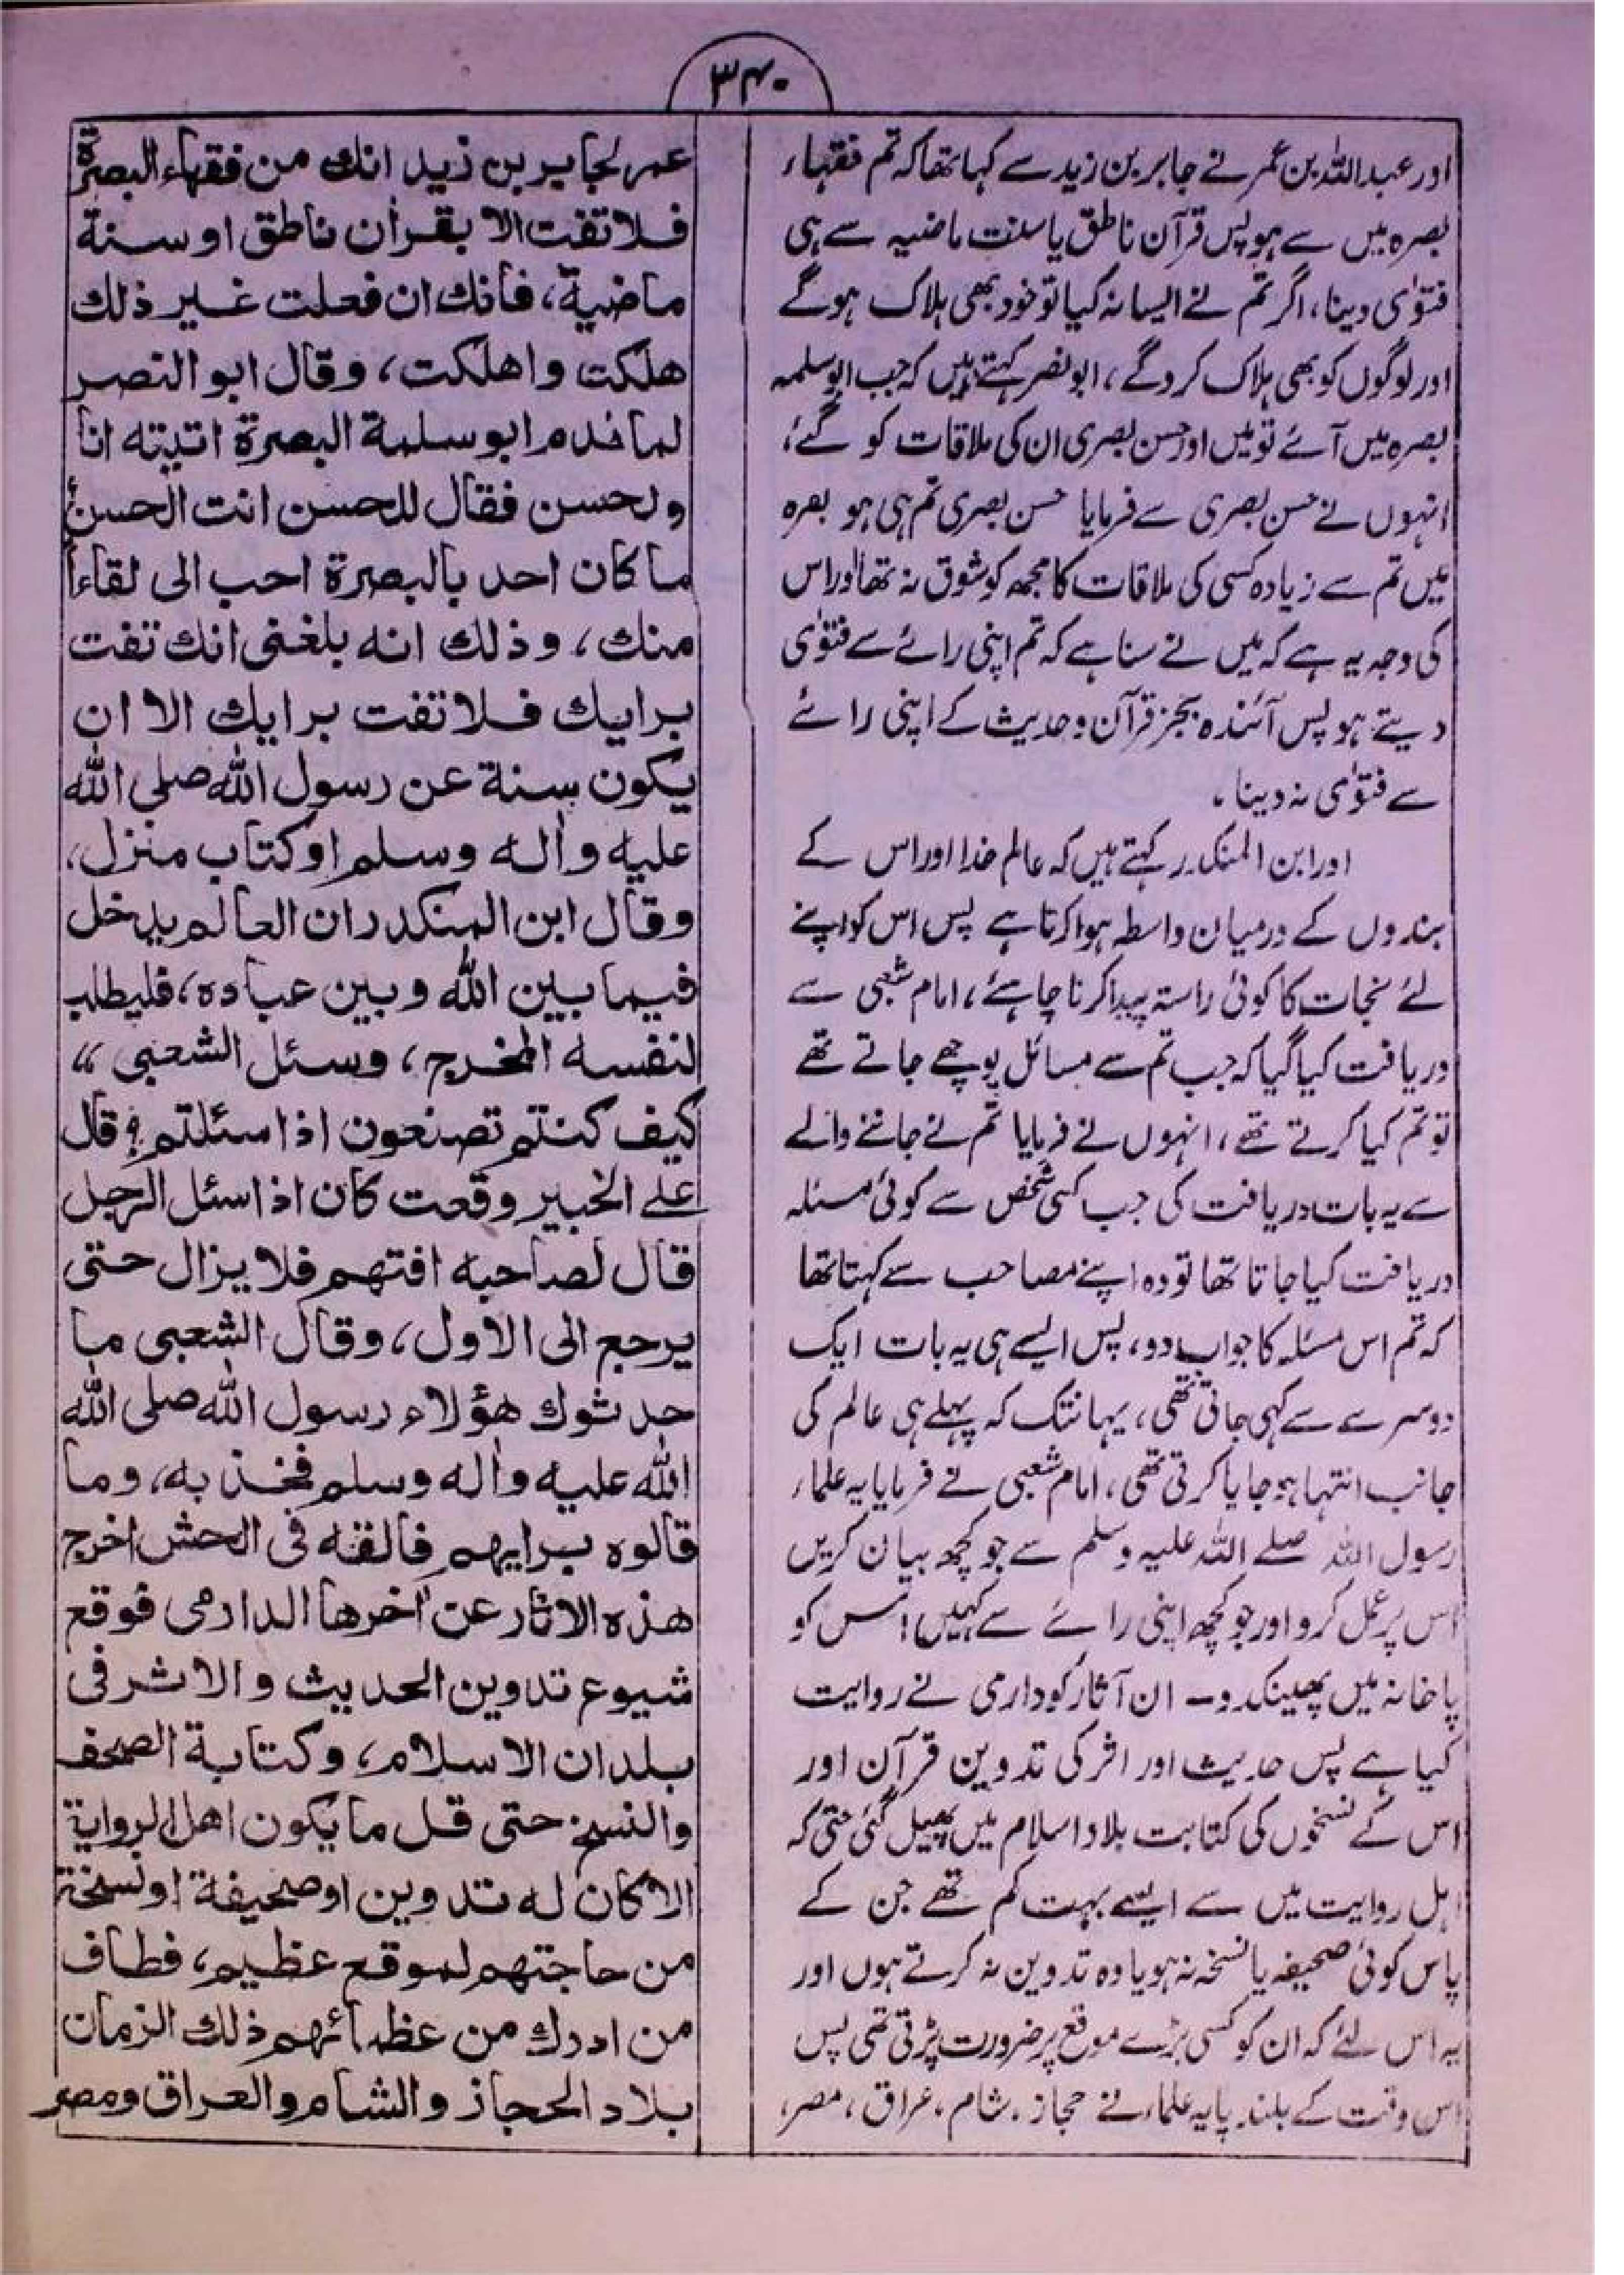 ۳۴۰
اور عبداللہ بن عمر نے جابر بن زید سے کہا تھا کہ تم فقہاء
بصرہ میں سے ہو پس قرآن ناطق یا سنت ماضیہ سے ہی
فتوٰی دینا، اگر تم نے ایسا نہ کیا تو خود بھی ہلاک ہو گے
اور لوگوں کو بھی ہلاک کرو گے، ابو نصر کہتے ہیں کہ جب ابو سلمہ
بصرہ میں آئے تو میں اور حسن بصری ان کی ملاقات کو گئے،
انہوں نے حسن بصری سے فرمایا حسن بصری تم ہی ہو بصرہ
میں تم سے زیادہ کسی کی ملاقات کا مجھ کو شوق نہ تھا اور اس
کی وجہ یہ ہے کہ میں نے سنا ہے کہ تم اپنی رائے سے فتوٰی
دیتے ہو پس آئندہ بجز قرآن و حدیث کے اپنی رائے
سے فتوٰی نہ دینا۔
اور ابن المنکدر کہتے ہیں کہ عالم خدا اور اس کے
بندوں کے درمیان واسطہ ہوا کرتا ہے پس اس کو اپنے
لئے نجات کا کوئی راستہ پیدا کرنا چاہئے، امام شعبی سے
دریافت کیا گیا کہ جب تم سے مسائل پوچھے جاتے تھے
تو تم کیا کرتے تھے، انہوں نے فرمایا تم نے جاننے والے
سے یہ بات دریافت کی جب کسی شخص سے کوئی مسئلہ
دریافت کیا جاتا تھا تو وہ اپنے مصاحب سے کہتا تھا
کہ تم اس مسئلہ کا جواب دو، پس ایسے ہی یہ بات ایک
دوسرے سے کہی جاتی تھی، یہانتک کہ پہلے ہی عالم کی
جانب انتہا ہو جایا کرتی تھی، امام شعبی نے فرمایا یہ علماء
رسول اللہ صلے اللہ علیہ وسلم سے جو کچھ بیان کریں
اس پر عمل کرو اور جو کچھ اپنی رائے سے کہیں اس کو
پاخانہ میں پھینکدو۔ ان آثار کو دارمی نے روایت
کیا ہے پس حدیث اور اثر کی تدوین قرآن اور
اس کے نسخوں کی کتابت بلاد اسلام میں پھیل گئی حتی کہ
اہل روایت میں سے ایسے بہت کم تھے جن کے
پاس کوئی صحیفہ یا نسخہ نہ ہو یا وہ تدوین نہ کرتے ہوں اور
یہ اس لئے کہ ان کو کسی بڑے موقع پر ضرورت پڑتی تھی پس
اس وقت کے بلند پایہ علماء نے حجاز، شام، عراق، مصر،
عمر لجابر بن زيد انك من فقهاء البصرة
فلا تفت الا بقرآن ناطق او سنة
ماضية، فانك ان فعلت غير ذلك
هلكت واهلكت، وقال ابو النصر
لما قدم ابو سلمة البصرة اتيته انا
ولحسن فقال للحسن انت الحسن
ما كان احد بالبصرة احب الى لقاءا
منك، وذلك انه بلغنى انك تفت
برايك فلا تفت برايك الا ان
يكون سنة عن رسول الله صلى الله
عليه واله وسلم او كتاب منزل،
وقال ابن المنكدر ان العالم يدخل
فيما بين الله وبين عباده، فليطلب
لنفسه المخرج، وسئل الشعبى ،،
كيف كنتم تصنعون اذا سئلتم؟ قال
على الخبير وقعت كان اذا سئل الرجل
قال لصاحبه افتهم فلا يزال حتى
يرجع الى الاول، وقال الشعبى ما
حدثوك هؤلاء رسول الله صلى الله
الله عليه واله وسلم فخذ به، وما
قالوه برايهم فالقه فى الحش اخرج
هذه الاثار عن آخرها الدارمى فوقع
شيوع تدوين الحديث والاثر فى
بلدان الاسلام، وكتابة الصحف
والنسخ حتى قل ما يكون اهل الرواية
الا كان له تدوين او صحيفة او نسخة
من حاجتهم لموقع عظيم، فطاف
من ادرك من عظمائهم ذلك الزمان
بلاد الحجاز والشام والعراق ومصر